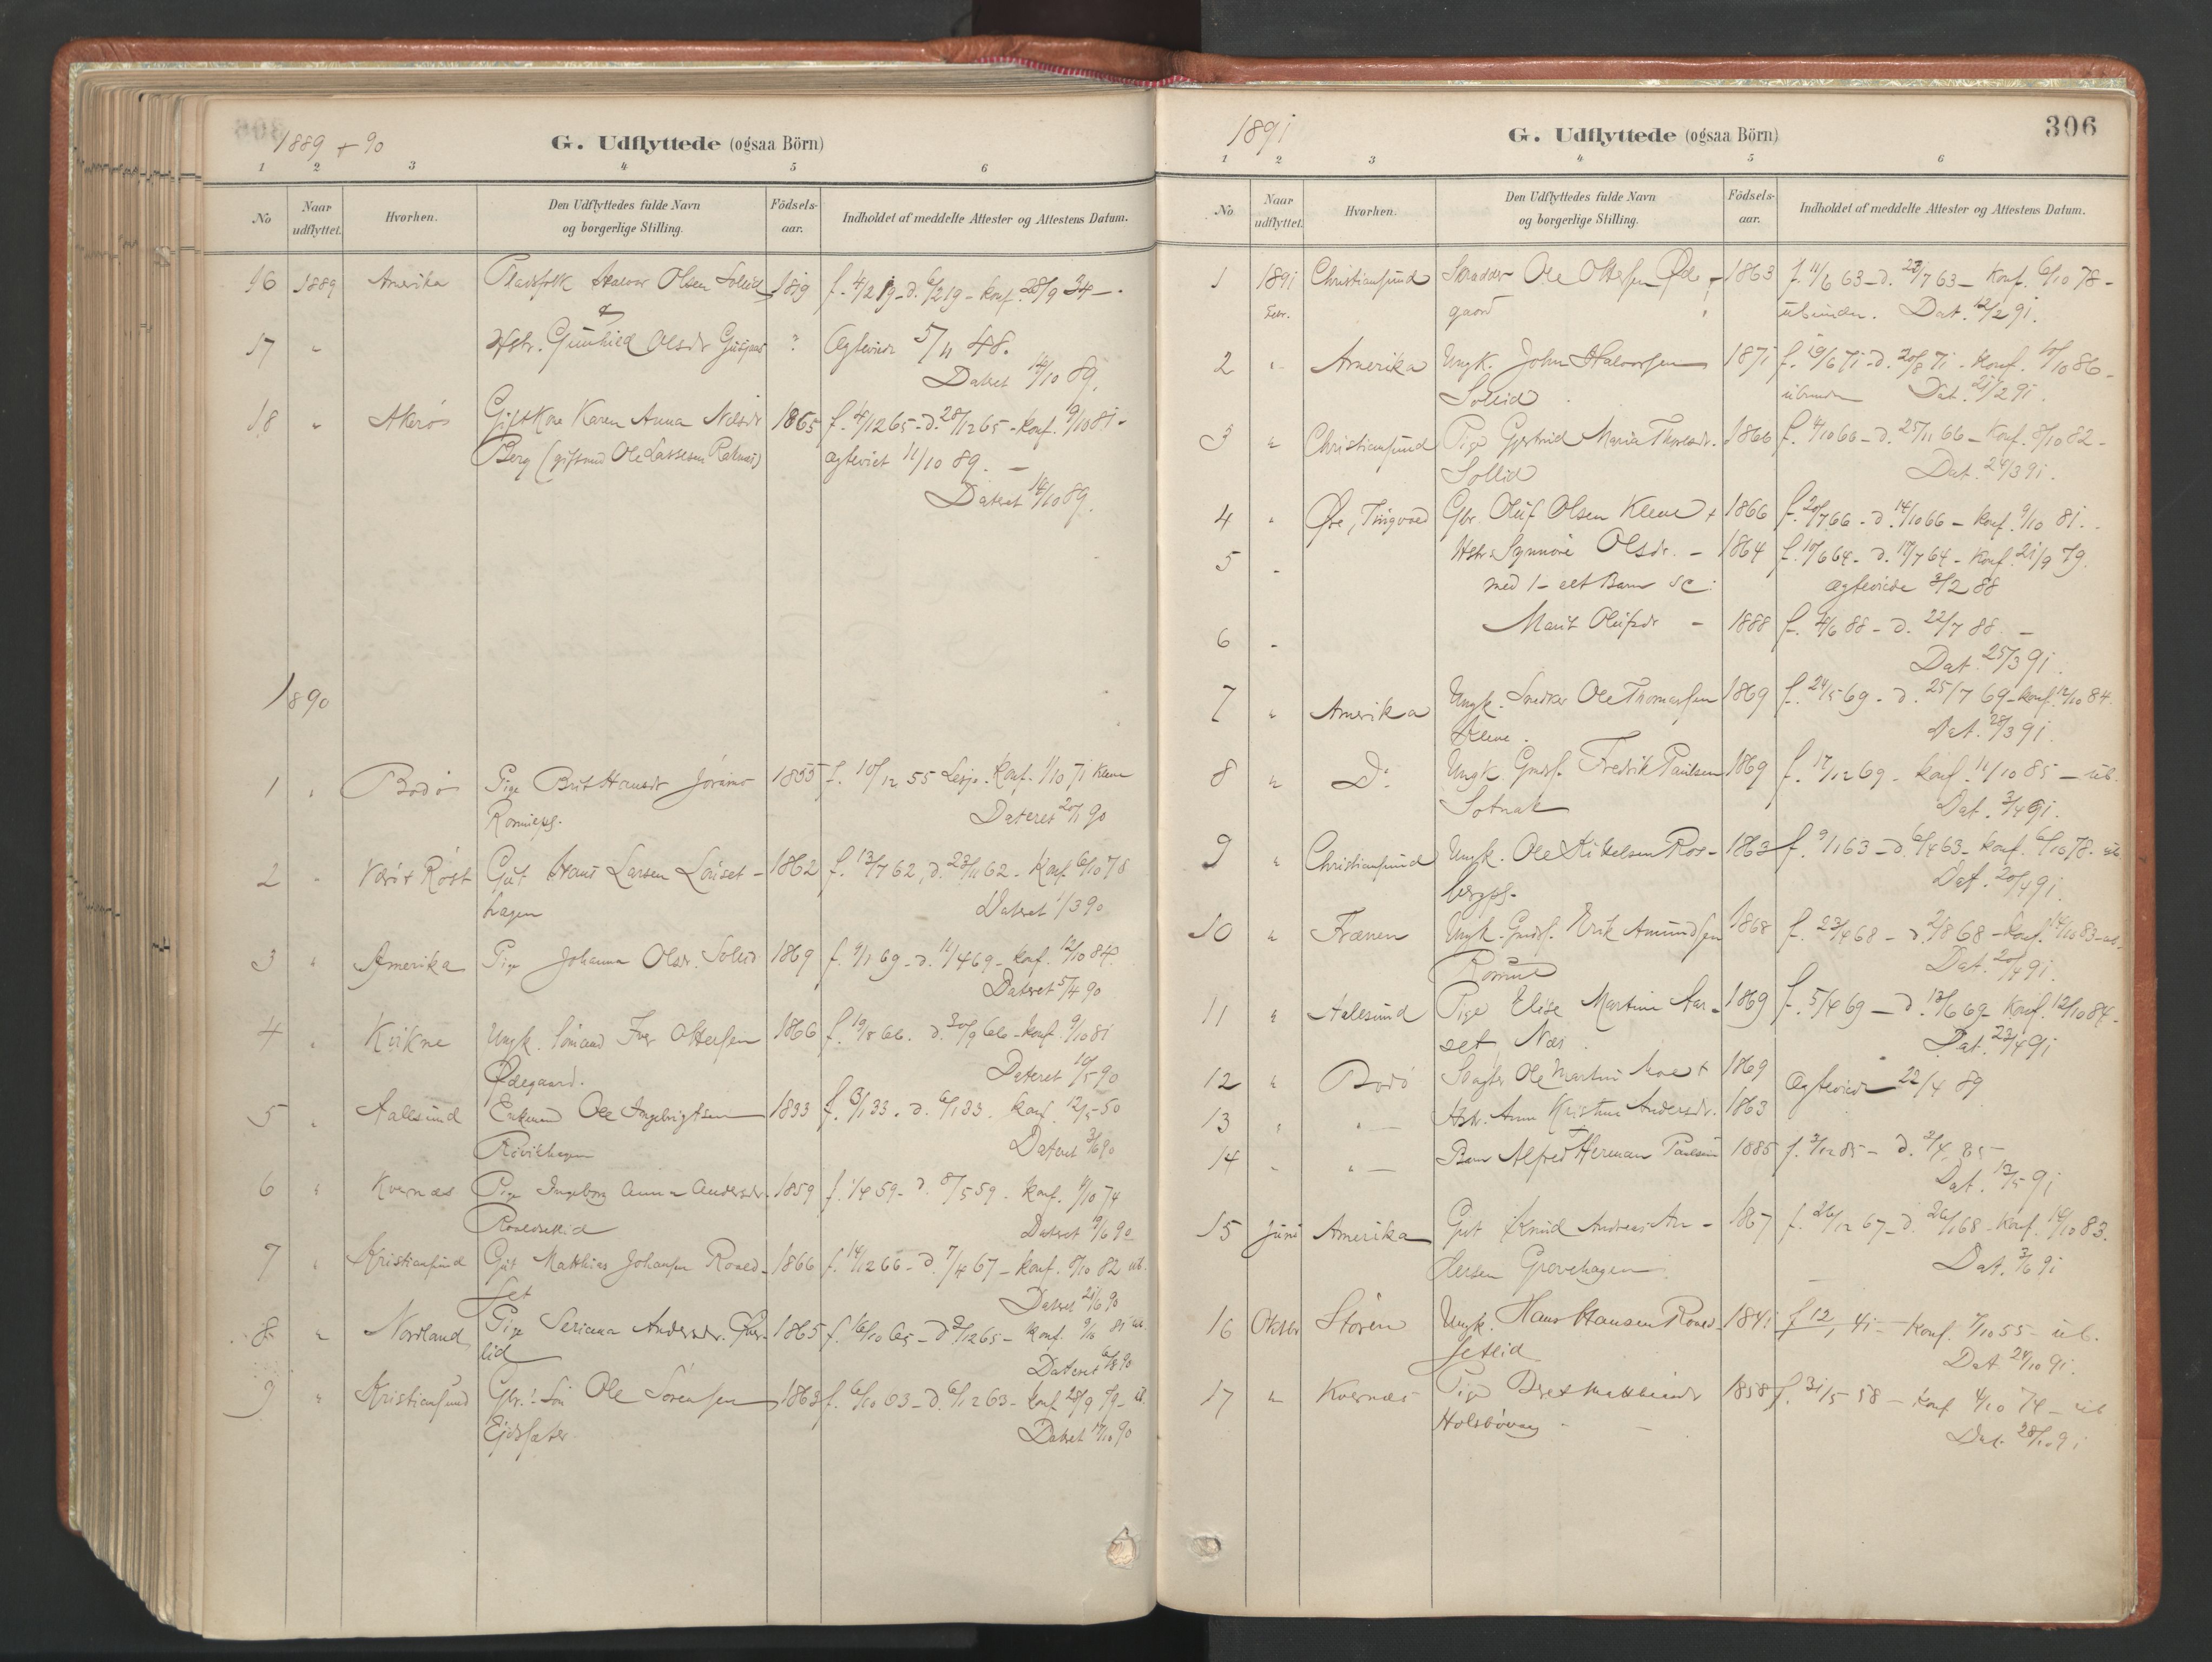 1889 + 90
G. Udflyttede (ogsaa Börn)
1 2 3 4 5 6
No
Naar udflyttet.
Hvorhen.
Den Udflyttedes fulde Navn og borgerlige Stilling.
Födsels-aar.
Indholdet af meddelte Attester og Attestens Datum.
16 1889 Amerika Pladsfolk Halvor Olsen Solid 1819 f. 4/2 19 - d. 6/2 19 - konf. 28/9 34 -
&
17 " Hstr. Gunhild Olsdr ? Ægteviede 5/11 48.
Datret 14/10 89.
18 " Akerø Gift Kone Karen Anna Nilsdr 1865 f. 4/12 65 - d. 28/12 65 - konf. 9/10 81 -
Berg (gift med Ole Lassesen ægteviet 11/10 89. -
Datret 14/10 89.
1890
1 " Bodø Pige Brit Hansdr 1855 f. 10/12 55 Lesje. Konf. 1/10 71
Dateret 20/1 90
2 " Værø + Røst Gut Hans Larsen Löuset - 1862 f. 13/7 62, d. 23/11 62 - Konf. 6/10 78
hagen Datret 1/3 90
3 " Amerika Pige Johanna Olsdr. Solid 1869 f. 9/1 69 - d. 11/4 69 - konf. 12/10 84.
Datret 5/4 90
4 " Kvikne Ungk. Iver Ottersen 1866 f. 19/8 66. d. 30/9 66 - konf. 9/10 81
Ødegaard. Dateret 10/5 90
5 " Aallesund Enkemand Ole Ingebrigtsen 1833 f. 3/1 33. d. 6/1 33. konf. 12/5 - 50
Datret 3/6 90
6 " Kvernæs Pige Ingeborg Anna Andersdr. 1859 f. 1/4 59 - d. 8/5 59. konf. 4/10 74
Roaldsetlid Datret 19/6 90
7 " Kristiansund Gut Matthias Johansen Roald- 1866 f. 14/12 66 - d. 7/4 67 - konf. 8/10 82 ub.
set Datret 21/6 90
8 " Nordland Pige Seriana Andersdr. Øver- 1865 f. 16/10 65 - d. 8/12 65 - konf. 9/10 81 ub.
lid Dateret 6/8 90
9 " Kristiansund Gbr.: Søn Ole Sørensen 1863 f. 6/10 63 - d. 6/12 63 - konf. 28/9 79 - ub.
Ejdsæter Datret 17/10 90
1891
G. Udflyttede (ogsaa Börn)
306
1 2 3 4 5 6
No
Naar udflyttet.
Hvorhen.
Den Udflyttedes fulde Navn og borgerlige Stilling.
Födsels-aar.
Indholdet af meddelte Attester og Attestens Datum.
1 1891 Christiansund Skrædder Ole Ottersen Øde- 1863 f. 11/6 63 - d. 28/7 63 - Konf. 6/10 78 -
Febr. gaard ubunden. Dat. 12/2 91.
2 " Amerika Ungk. John Halvorsen 1871 f. 19/6 71 - d. 20/8 71 - Konf. 10/10 86 -
Sollid ubunden Dat. 21/2 91.
3 " Christiansund Pige Gjertrud Maria 1866 f. 4/10 66 - d. 25/11 66 - Konf. 8/10 82 -
Sollid Dat. 24/3 91.
4 " Øre, Tingvold Gbr. Oluf Olsen Kleve + 1866 f. 20/7 66 - d. 14/10 66 - Konf. 9/10 81.
5 " Hstr. Synnøve Olsdr. - 1864 f. 10/6 64 - d. 17/7 64 - Konf. 21/9 79.
med 1 - et Barn sc: Ægteviede 8/2 88
6 " Marit Olufsdr - 1888 f. 4/6 88 - d. 22/7 88 -
Dat. 25/3 91.
7 " Amerika Ungk. Snedker Ole Thomassen 1869 f. 24/5 69 - d. 25/7 69 - Konf. 12/10 84.
Kleve. Dat. 28/3 91.
8 " Do Ungk. Gmdss. Fredrik Paulsen 1869 f. 17/12 69 - konf. 11/10 85 - ub.
Sotnak Dat. 3/4 91.
9 " Christiansund Ungk. Ole Mikkelsen Ros- 1863 f. 9/1 63 - d. 6/4 63 - konf. 6/10 78 - ub.
Dat. 20/4 91.
10 " Frænen Ungk. Gmdss. Erik Amundsen 1868 f. 23/4 68 - d. 2/8 68 - Konf. 14/10 83 - ub.
Dat. 20/4 91.
11 " Aalesund Pige Elise Martine Aar- 1869 f. 5/4 69 - d. 13/6 69 - Konf. 12/10 84 -
set Næs. Dat. 23/4 91
12 " Bodø Ole Martin Moe + 1869 Ægteviede 22/4 89
13 " " - Hstr. Anne Kristine Andersdr. 1863
14 " " - Barn Alfred Herman Paulsen 1885 f. 3/12 85 - d. 2/4 85 -
Dat. 12/5 91
15 Juni Amerika Gut Knud Andreas An- 1867 f. 26/12 67 - d. 26/1 68 - Konf. 14/10 83.
dersen Grovehagen Dat. 3/6 91
16 Oktobr Støren Ungk. Hans Hansen Roald- 1841 f 12/ 41 - Konf. 7/10 55 - ub.
setlid Dat. 24/10 91.
17 " Kvernæs Pige Beret Matthiasdr 1858 f. 31/5 58 - Konf 4/10 74 - ub
Dat. 28/10 91